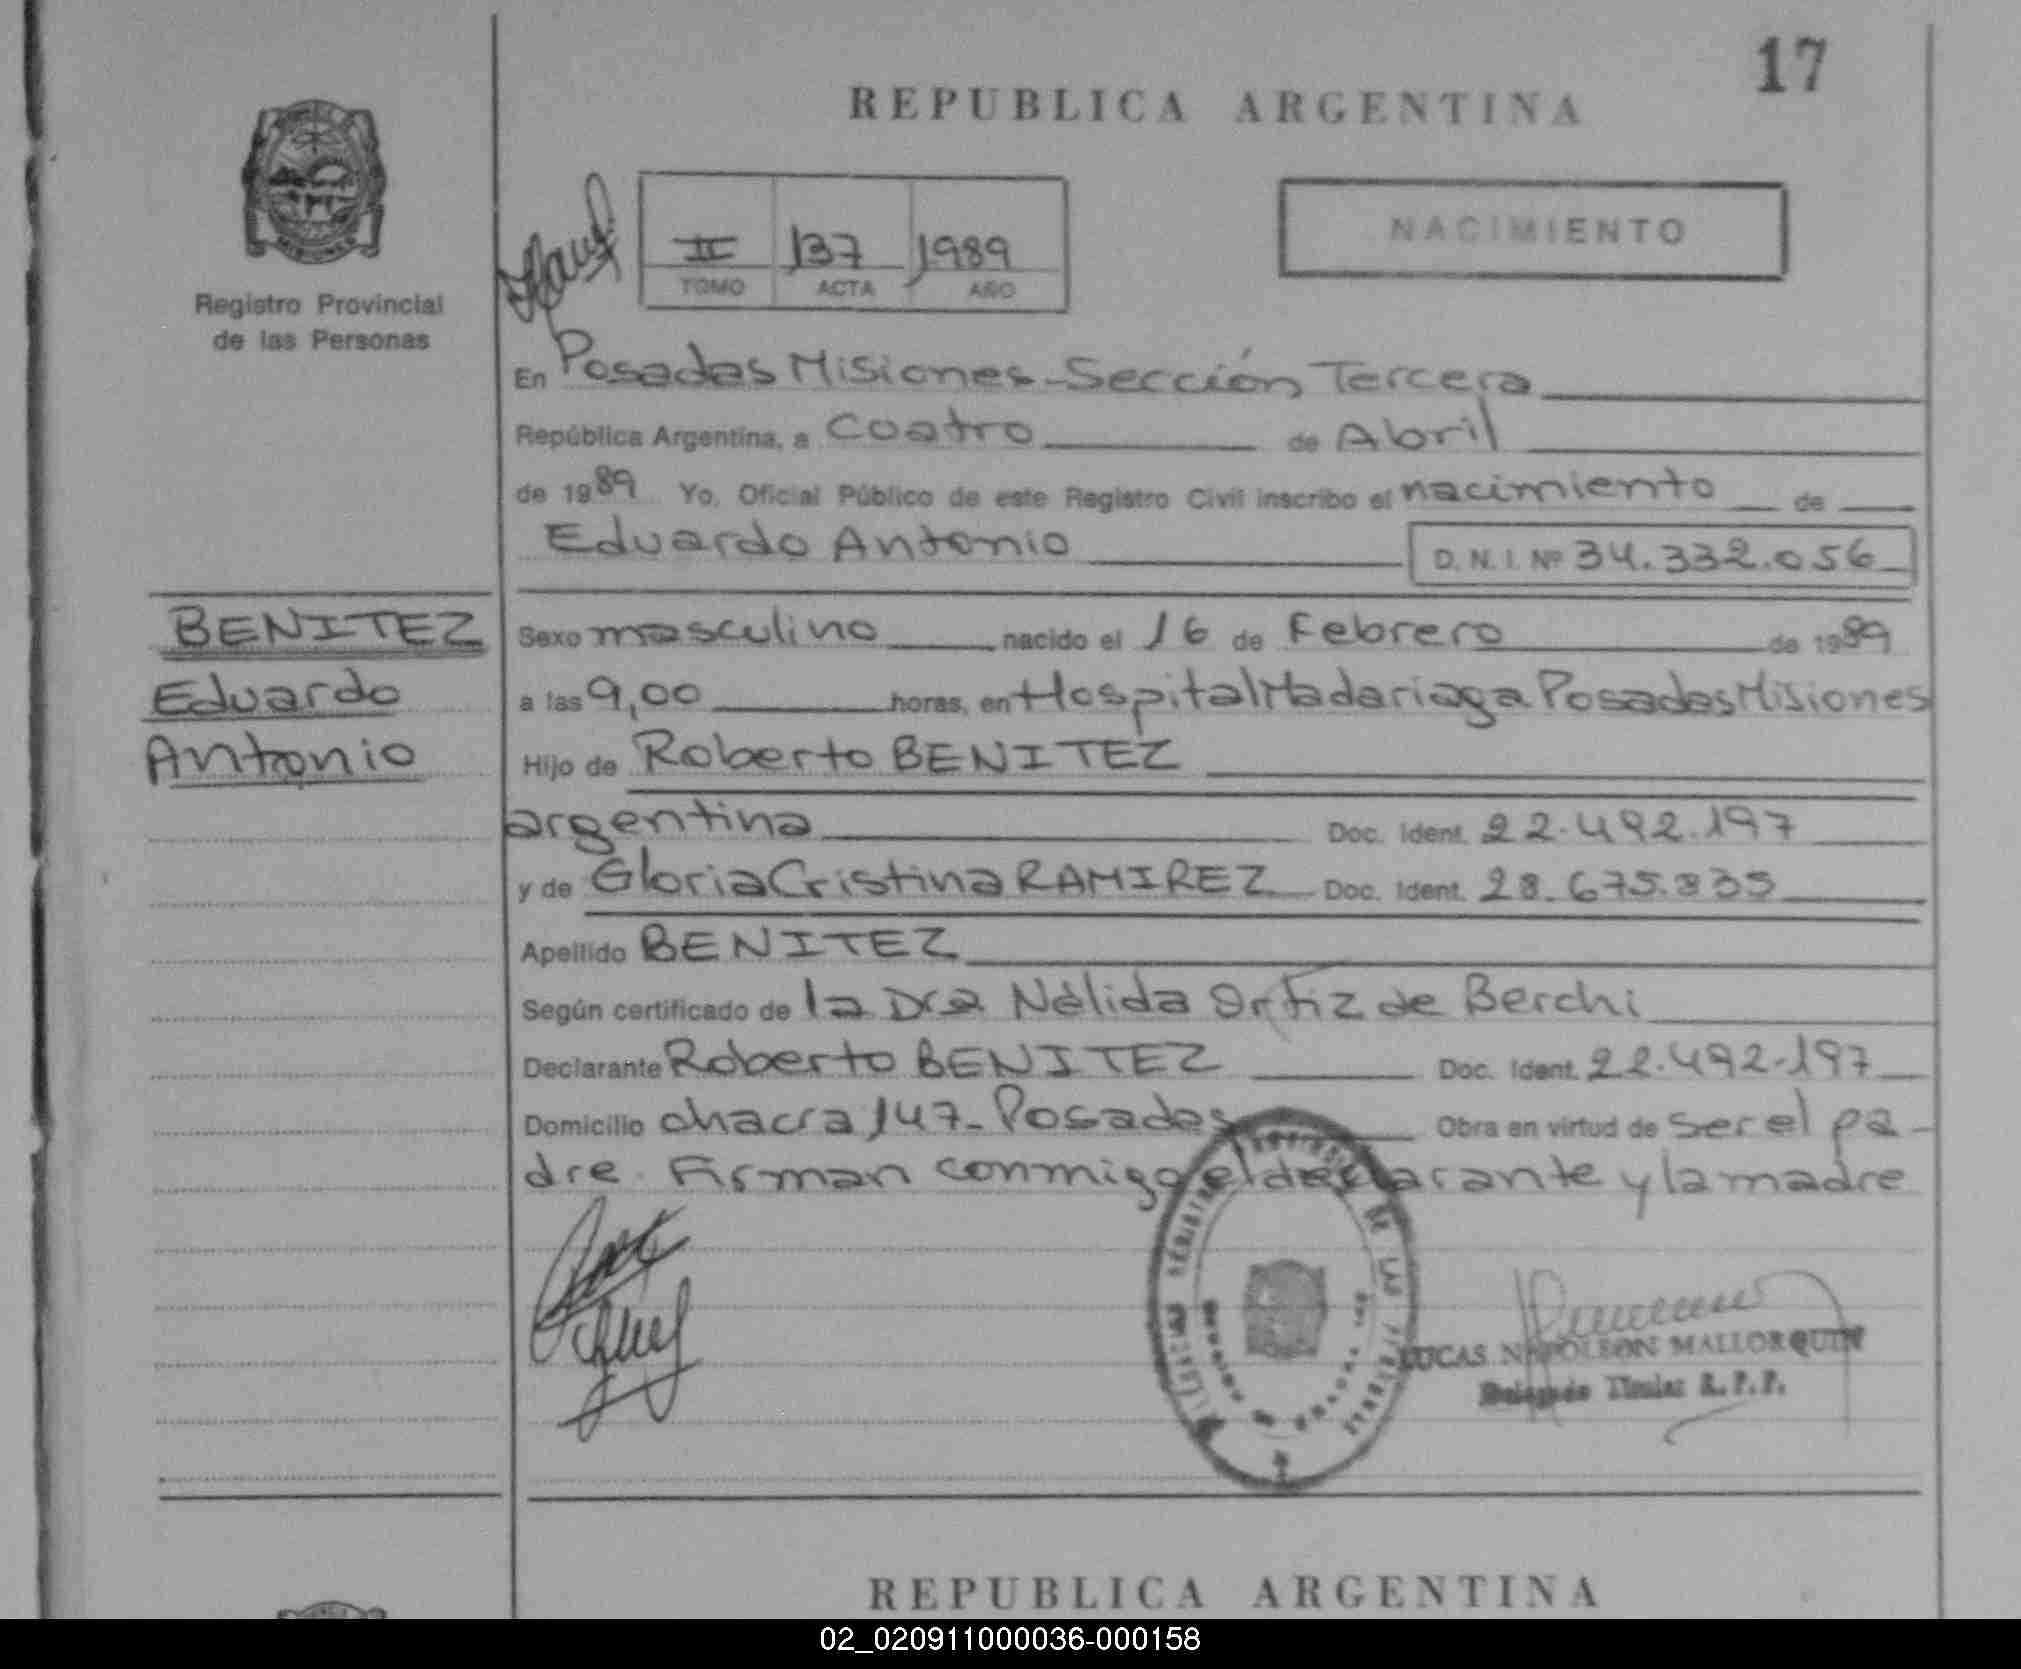 17
REPUBLICA ARGENTINA
MISIONES
Registro Provincial
de las Personas
II 137 1989
TOMO ACTA AÑO
NACIMIENTO
En Posadas Misiones-Sección Tercera
República Argentina, a Coatro de Abril
de 1989 Yo, Oficial Público de este Registro Civil inscribo el nacimiento de
Eduardo Antonio D.N.I. Nº 34.332.056
BENITEZ
Eduardo
Antonio
Sexo masculino nacido el 16 de Febrero de 1989
a las 9,00 horas, en Hospital Madariaga Posadas Misiones
Hijo de Roberto BENITEZ
argentina Doc. Ident. 22.492.197
y de Gloria Cristina RAMIREZ Doc. Ident. 28.675.835
Apellido BENITEZ
Según certificado de la Dra Nélida Ortiz de Berchi
Declarante Roberto BENITEZ Doc. Ident. 22.492.197
Domicilio chacra 147-Posadas Obra en virtud de ser el pa-
dre. Firman conmigo el declarante y la madre
LUCAS NAPOLEON MALLORQUIN
Delegado Titular R.P.P.
REPUBLICA ARGENTINA
02_020911000036-000158